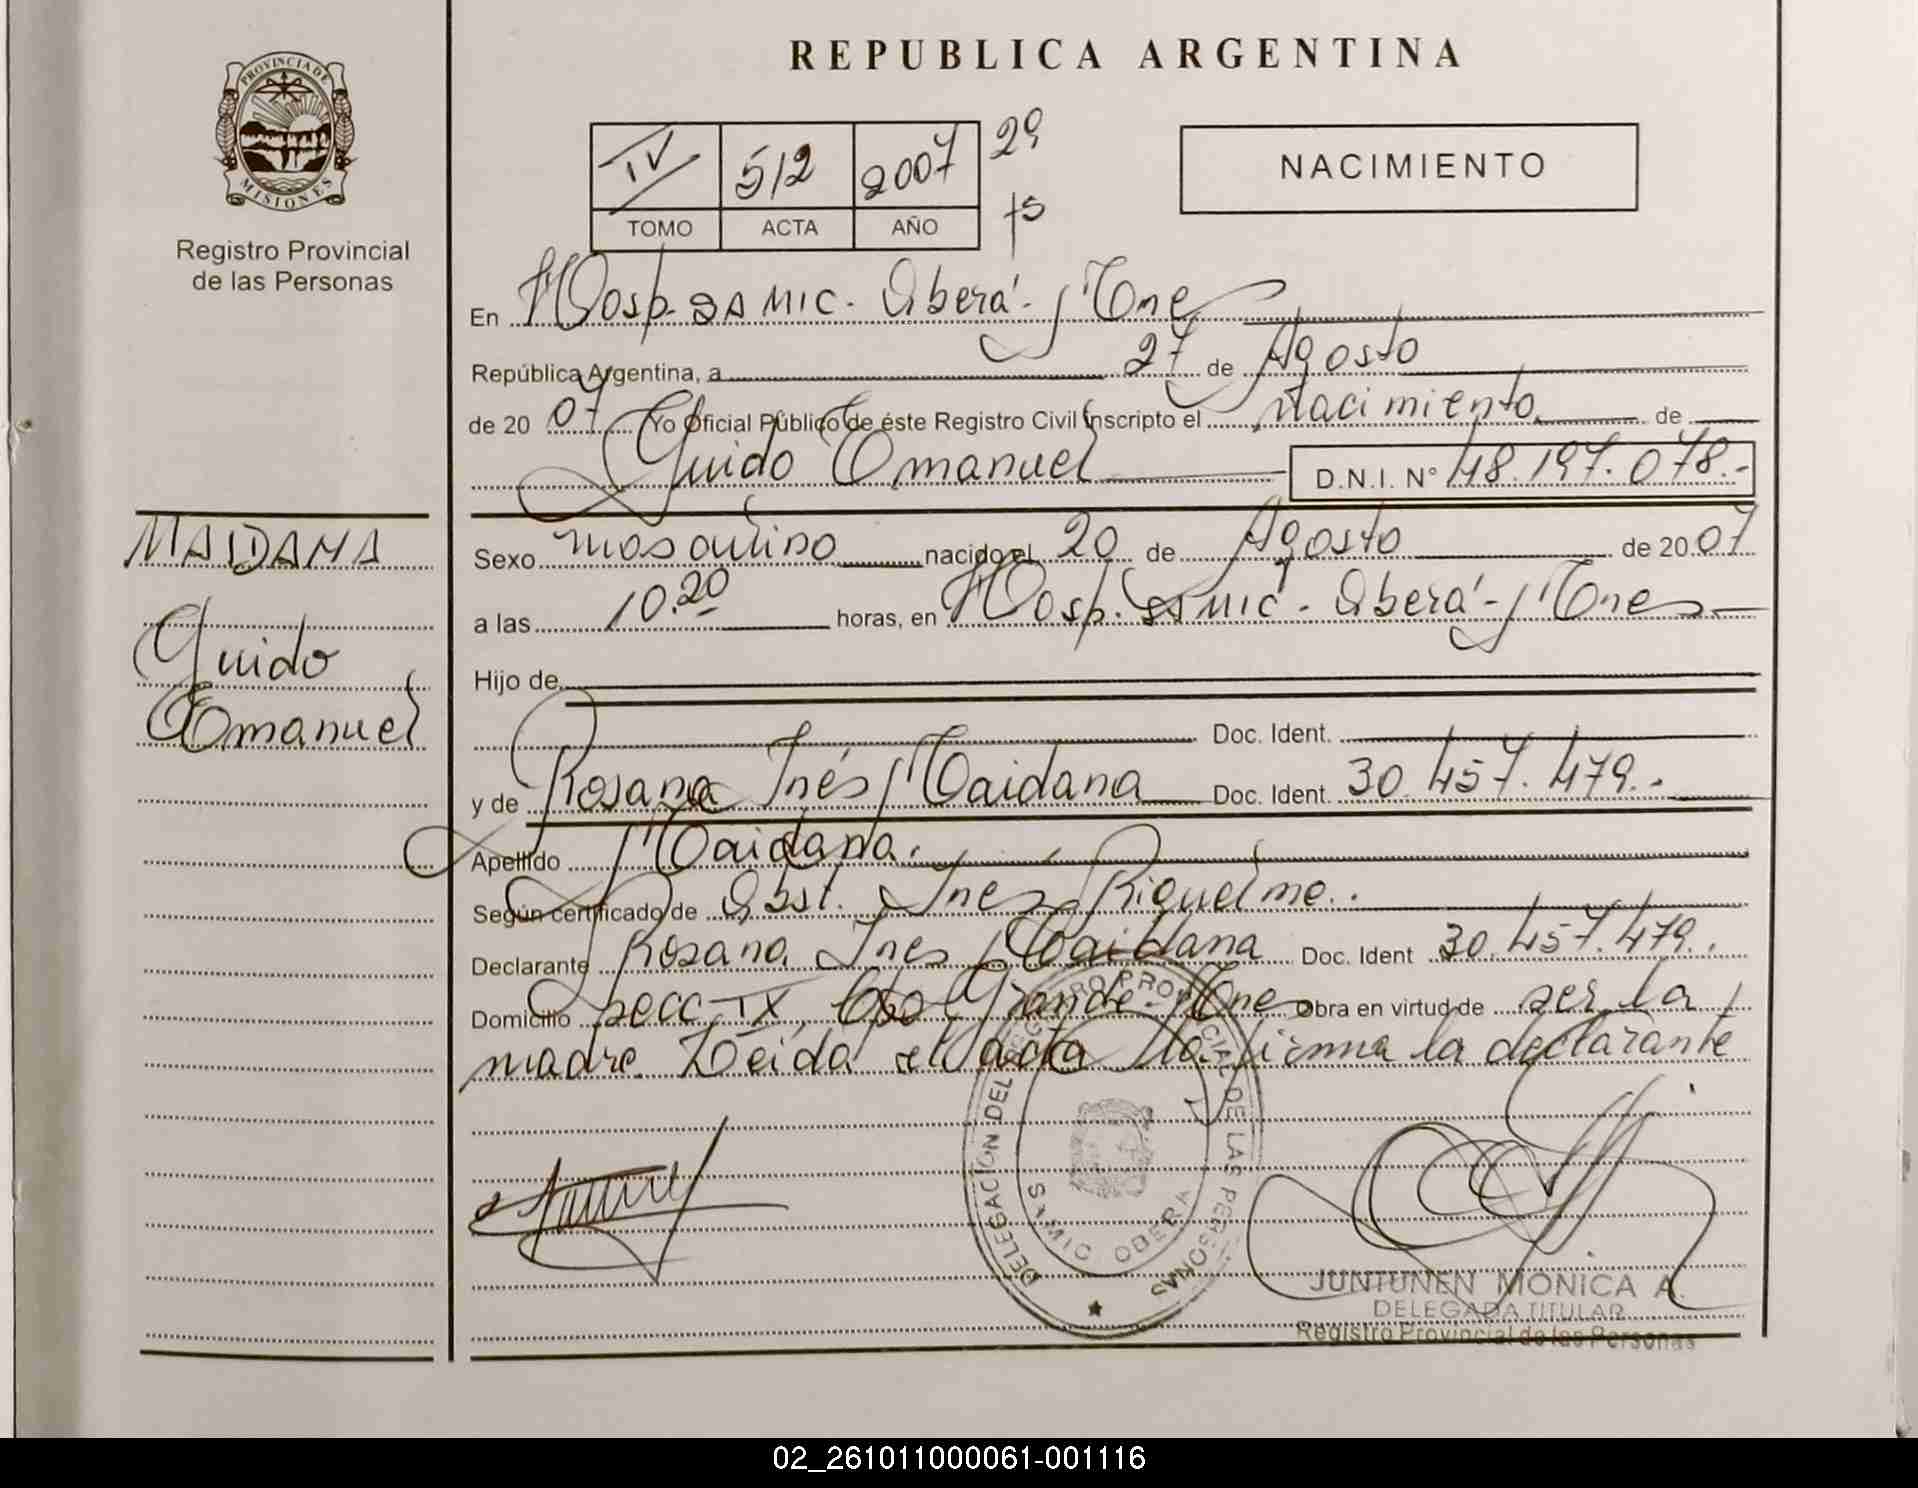 PROVINCIA DE
MISIONES
Registro Provincial
de las Personas
REPUBLICA ARGENTINA
IV 512 2007 29
TOMO ACTA AÑO fs
NACIMIENTO
En Hosp. SAMIC. Oberá - Mnes
República Argentina, a 27 de Agosto
de 20 07 Yo Oficial Público de éste Registro Civil inscripto el nacimiento de
Guido Emanuel D.N.I. N° 48.197.078.-
MAIDANA
Guido
Emanuel
Sexo masculino nacido el 20 de Agosto de 20 07
a las 10.20 horas, en Hosp. SAMIC - Oberá - Mnes
Hijo de
Doc. Ident.
y de Rosana Inés Maidana Doc. Ident. 30.457.479.-
Apellido Maidana.
Según certificado de Obst. Ines Riquelme.
Declarante Rosana Ines Maidana Doc. Ident 30.457.479.
Domicilio Secc IX, Grande - Mnes Obra en virtud de ser la
madre. Leída el acta la firma la declarante
DELEGACION DEL REGISTRO PROVINCIAL DE LAS PERSONAS
SAMIC OBERA
JUNTUNEN MONICA A.
DELEGADA TITULAR
Registro Provincial de las Personas
02_261011000061-001116